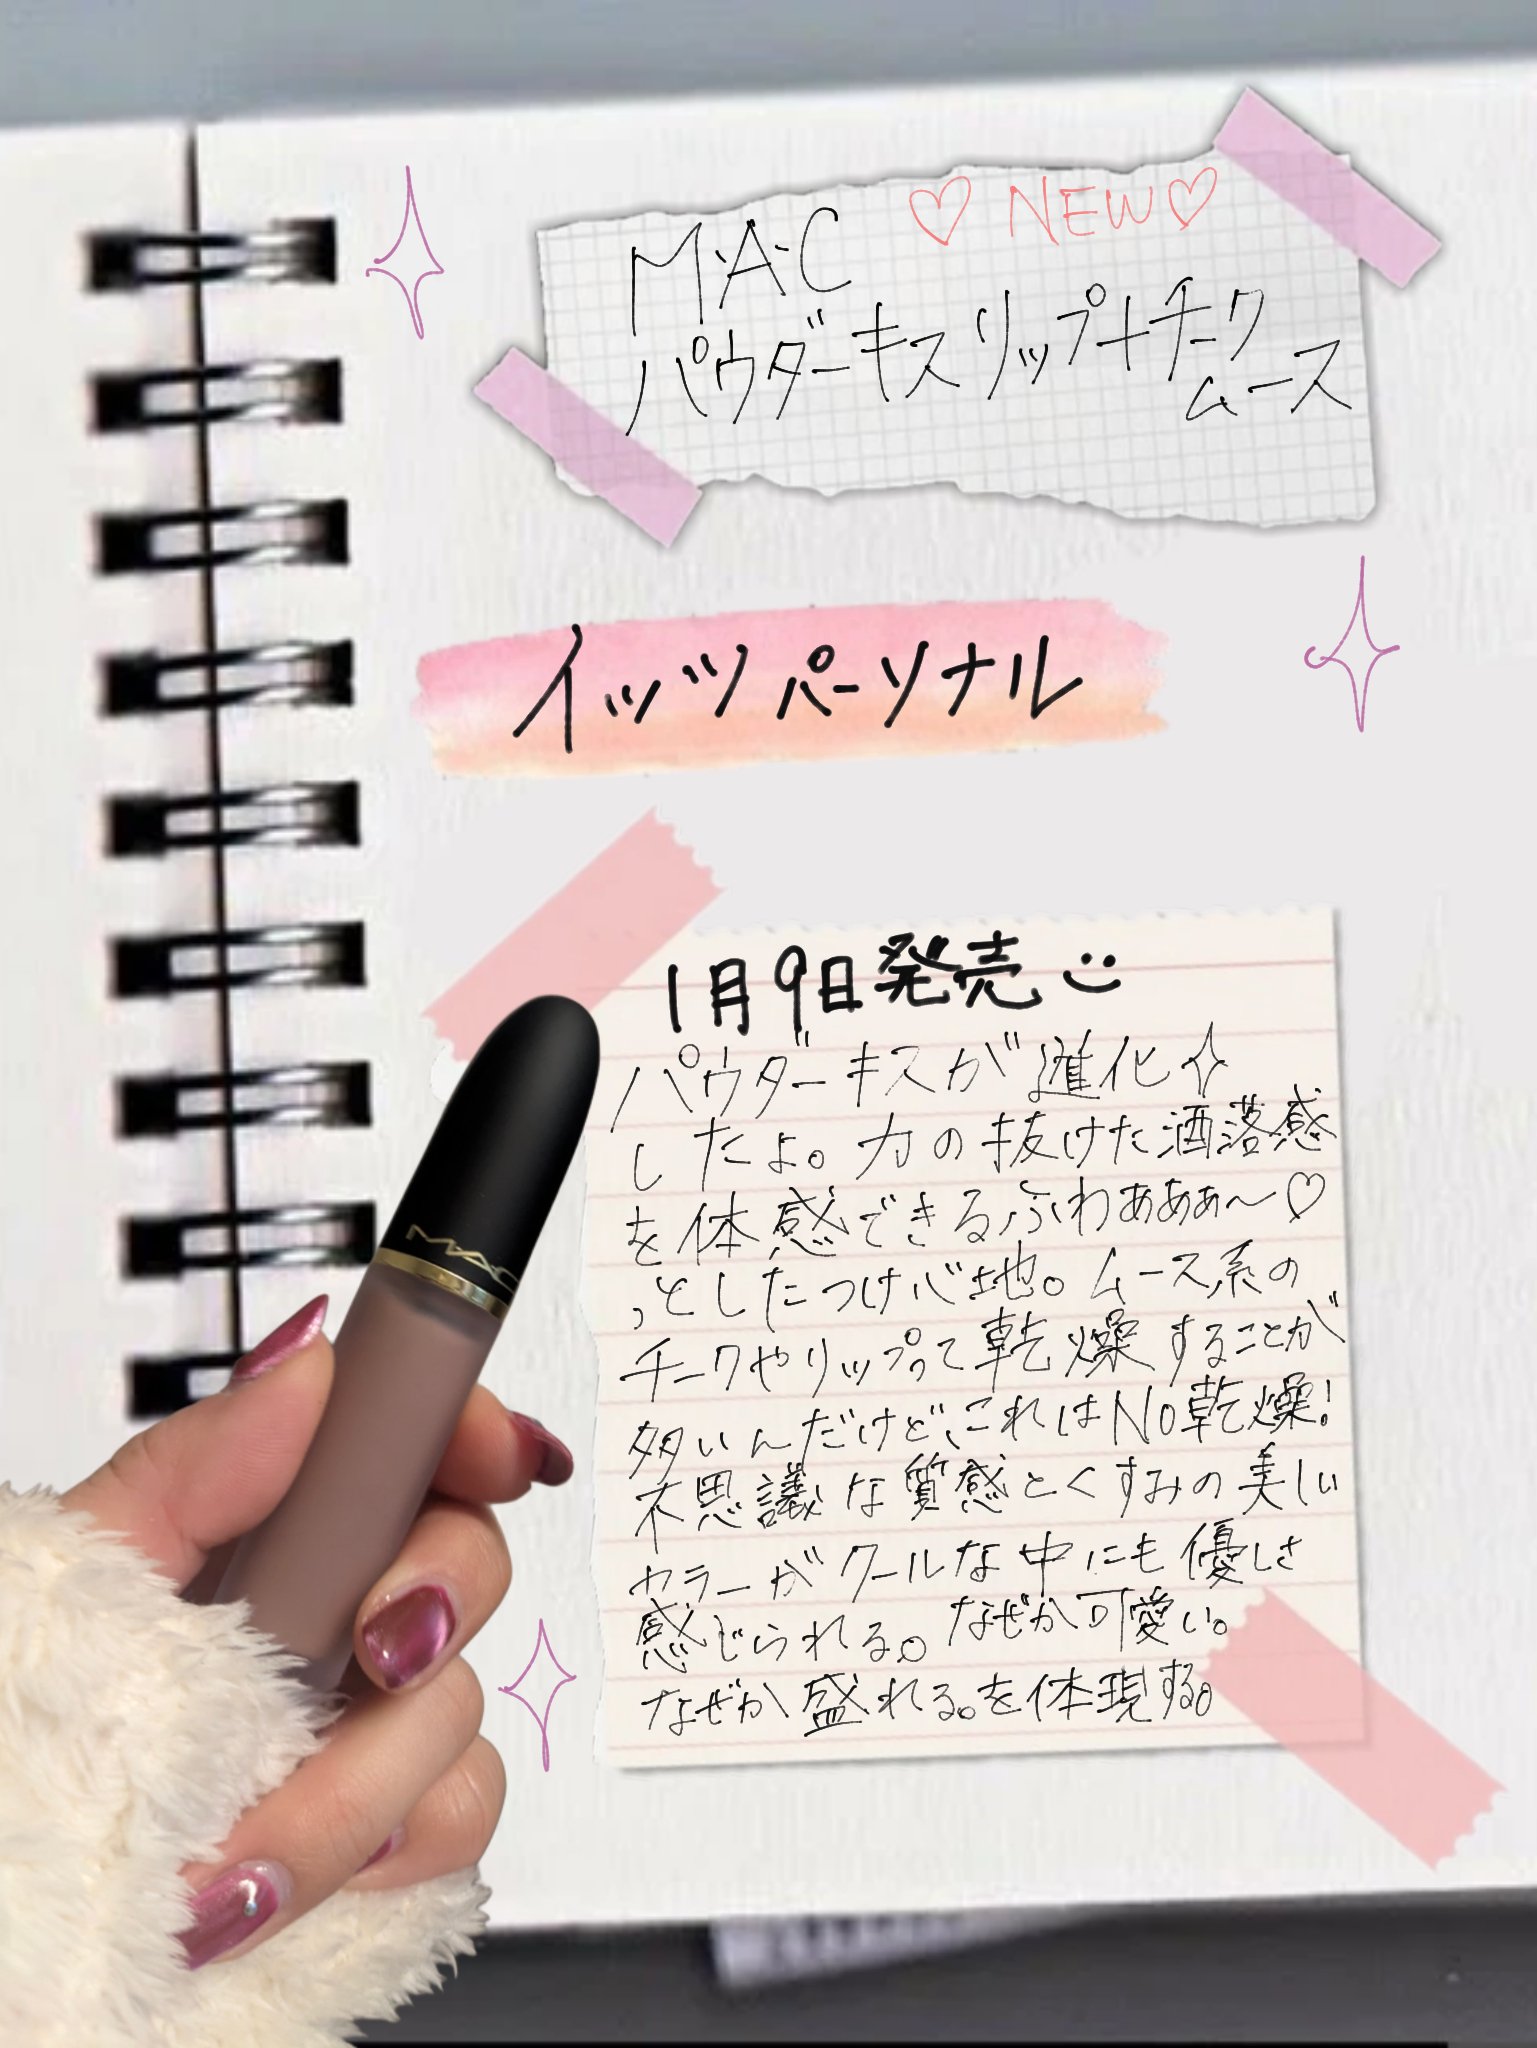 ♡ NEW ♡
M・A・C
パウダーキスリップ+チーク
ムース
イッツパーソナル
1月9日発売
パウダーキスが進化
したよ。力の抜けた洒落感
を体感できるふわあああ〜♡
っとしたつけ心地。ムース系の
チークやリップって乾燥することが
多いんだけど、これはNo乾燥!
不思議な質感とくすみの美しい
カラーがクールな中にも優しさ
感じられる。なぜか可愛い。
なぜか盛れる。を体現する。
MAC